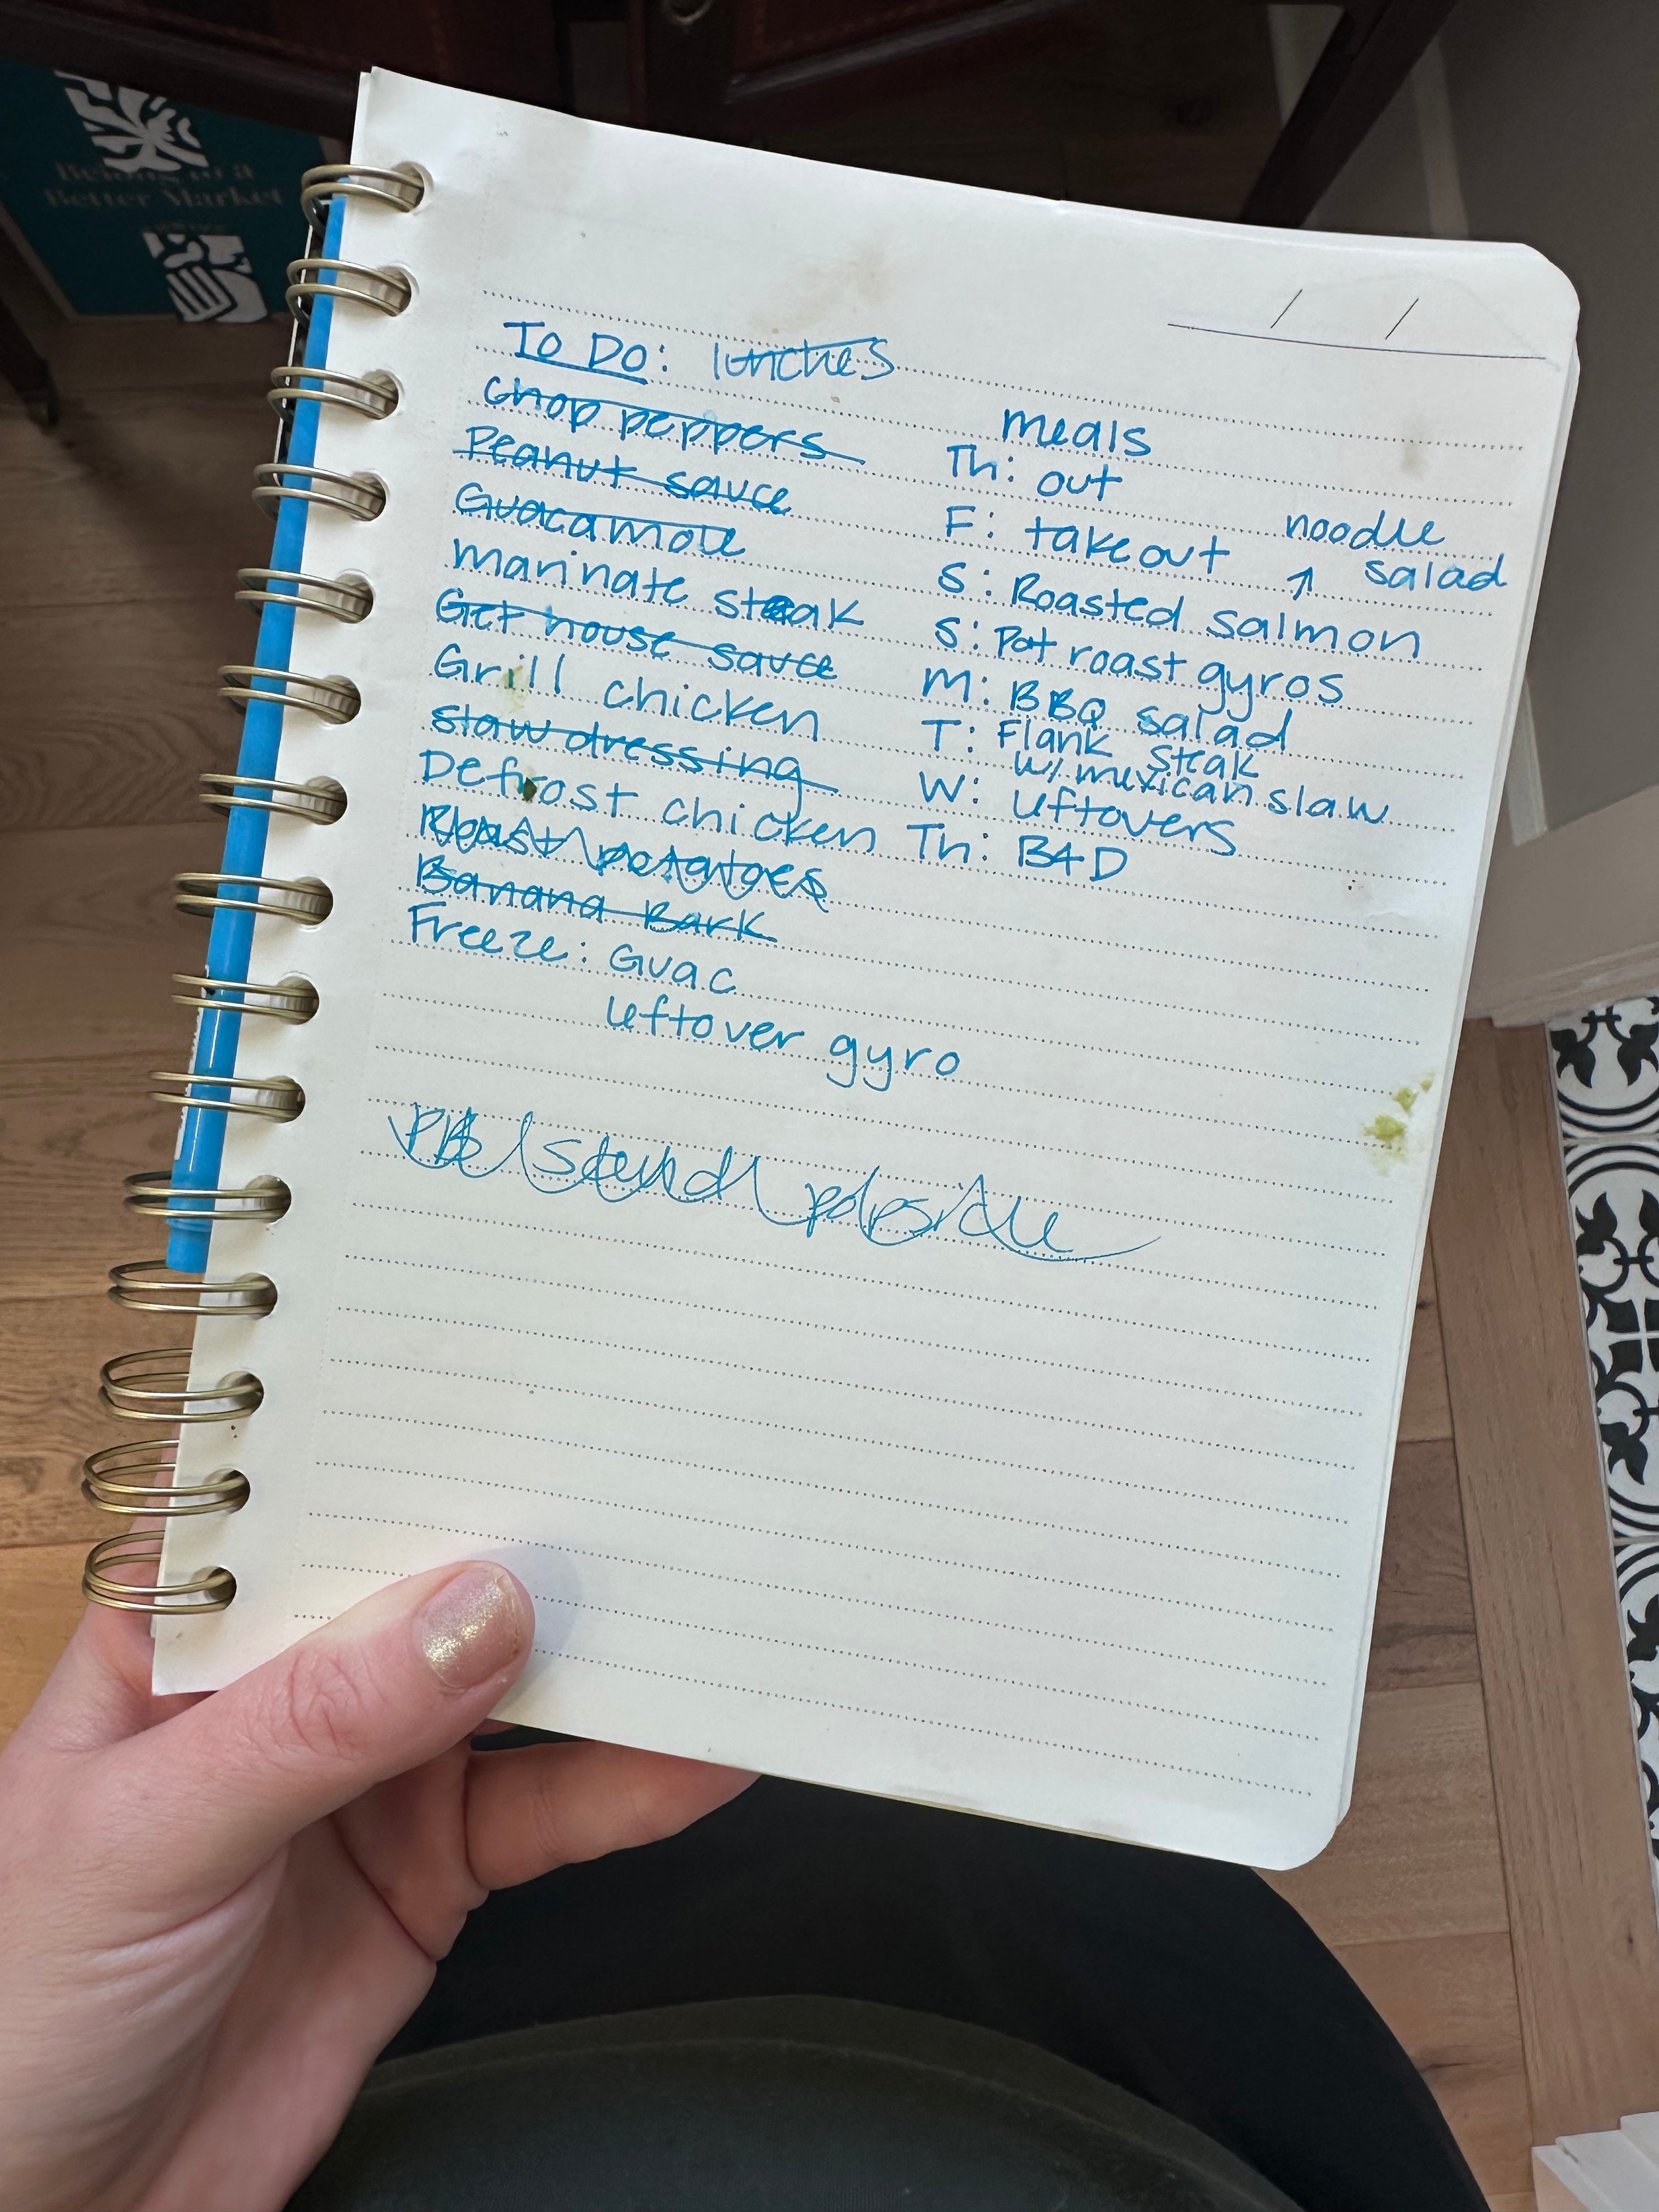 Belong to a
Better Market
To Do: lunches
chop peppers
Peanut sauce
Guacamole
marinate steak
Get house sauce
Grill chicken
slaw dressing
Defrost chicken
Roast potatoes
Banana Bark
Freeze: Guac
leftover gyro
popsicle
meals
Th: out
F: takeout
noodle
salad
S: Roasted salmon
S: Pot roast gyros
M: BBQ salad
T: Flank steak
w/ mexican slaw
W: leftovers
Th: B4D